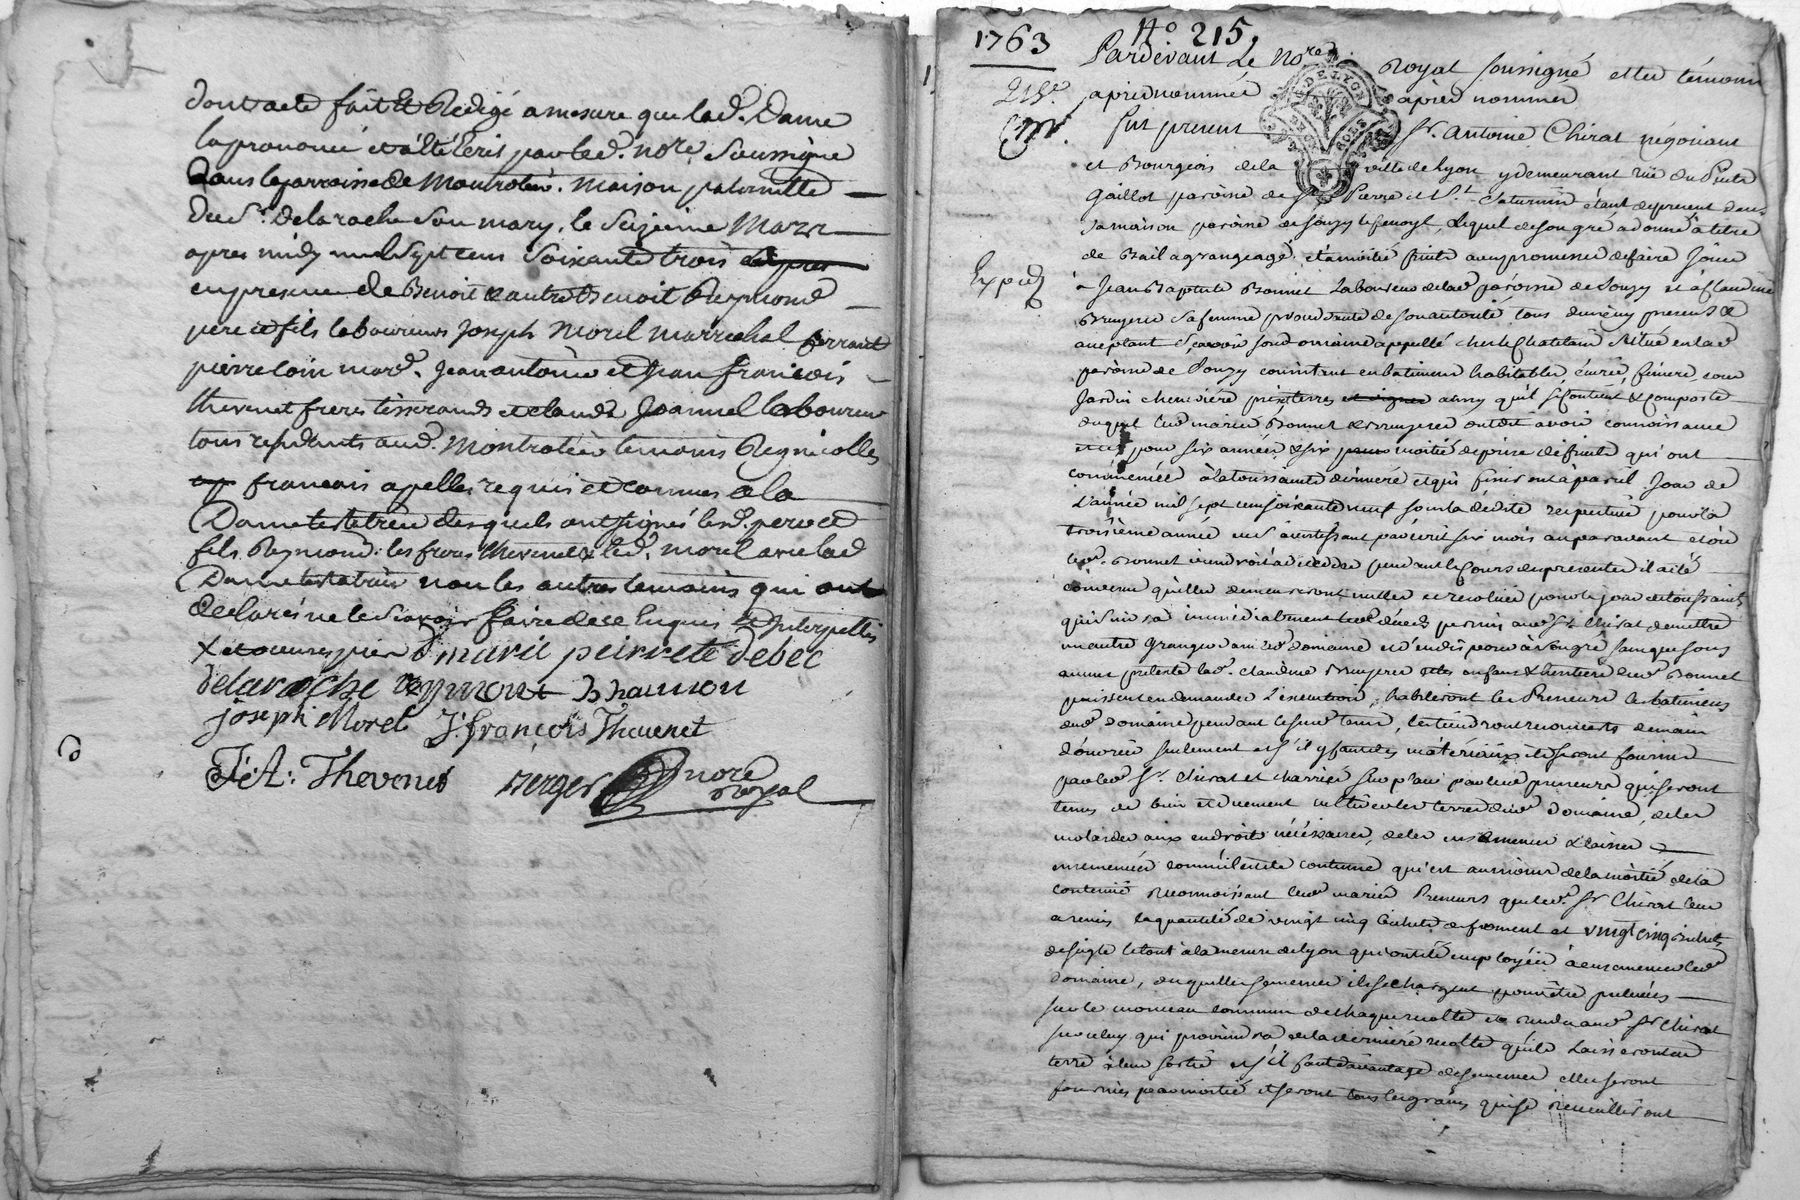 dont acte fait et Redigé a mesure que lad. Dame
la prononcé et a été Ecris par led. no.re Soussigné
dans la parroisse de Montrotier. maison paternelle
du S.r delaroche Son mary, le Seizieme Mars
apres midy mil Sept cens Soixante trois
en presence de Benoit & autre Benoit Reymond
pere et fils laboureurs Joseph Morel marrechal ferrant
pierre Coin mar.d. Jean antoine et Jean françois
thevenet freres tisserands et claude Joannel laboureur
tous residants aud. Montrotier temoins Regnicolles
françois apellés requis et connus de la
Dame testatrice desquels ont signé lesd. pere et
fils Reymond. les freres thevenet & led. morel avec lad
Dame testatrice non les autres temoins qui ont
declaré ne le Scavoir faire de ce Enquis et Interpellés
marie peirrete debec
delaroche reymont B raimon
joseph Morel J. françois Thevenet
J. A: Thevenet Berger nore
Royal
1763
N° 215.
Pardevant Le No.re Royal soussigné et les témoins
après nommés après nommés
fut présent S.r Antoine Chirat négociant
et Bourgeois de la ville de Lyon y demeurant rüe du Puits
Gaillot paroisse de S.t Pierre et S.t Saturnin étant de present dans
sa maison paroisse de Souzy Lequel de son gré a donné à titre
de Bail a grangeage et à moitié fruits avec promesse de faire Joüir
Exped
à Jean Baptiste Bonnet Laboureur de lad paroisse de Souzy et à Claudine
Bruyere sa femme procedante de son autorité tous deux icy presens &
acceptant Sçavoir son domaine appellé chez le Chatelain Situé en lad
paroisse de Souzy consistant en batimens habitables, écurie, feniere, cour
Jardin cheneviere prés terres et vignes ainsy qu'il se contient & Comporte
duquel lesd mariés Bonnet & Bruyere ont dit avoir connoissance
et ce pour six années & six prises moitié de prise de fruits qui ont
commencée à la toussaints derniere et qui finiront à pareil Jour de
L'année mil sept cens soixante neuf sous la dédite respective pour la
troisieme année en s'avertissant par écrit six mois auparavant et où
led. Bonnet viendroit à deceder pendant le Cours du present il a été
convenu qu'elles demeureront nulles et resolües pour le jour de toussaints
qui suivra immédiatement led décés permis aud S.r Chirat de mettre
un autre Granger aud domaine et d'en disposer à son gré sans que sous
aucun pretexte lad. Claudine Bruyere et les enfans & heritiers dud Bonnet
puissent en demander L'execution, habiteront les Preneurs les batimens
dud domaine pendant led. tems, les tiendront recouverts de main
d'œuvre seulement et s'il y faut des matériaux ils seront fournis
par led S.r Chirat et charriés sur place par lesd preneurs qui seront
tenus de bien et duement cultiver les terres dud domaine, de les
aux endroits nécéssaires, de les ensemencer & laisser
ensemencées comme il est de coutume qui est au moins de la moitié de la
contenüe reconnoissant lesd mariés Preneurs que led. S.r Chirat leur
a remis la quantité de vingt cinq bichets de froment et vingt cinq bichets
de seigle le tout à la mesure de Lyon qui ont été employées à ensemencer led
domaine, desquelles semences ils se chargent pour être prélevées
sur le monceau commun de chaque recolte et rendu aud S.r Chirat
sur celuy qui proviendra de la derniere recolte qu'ils Laisseront en
terre à leur sortie et s'il faut davantage de semences elles seront
fournies par moitié et seront tous les grains qui se receuilleront